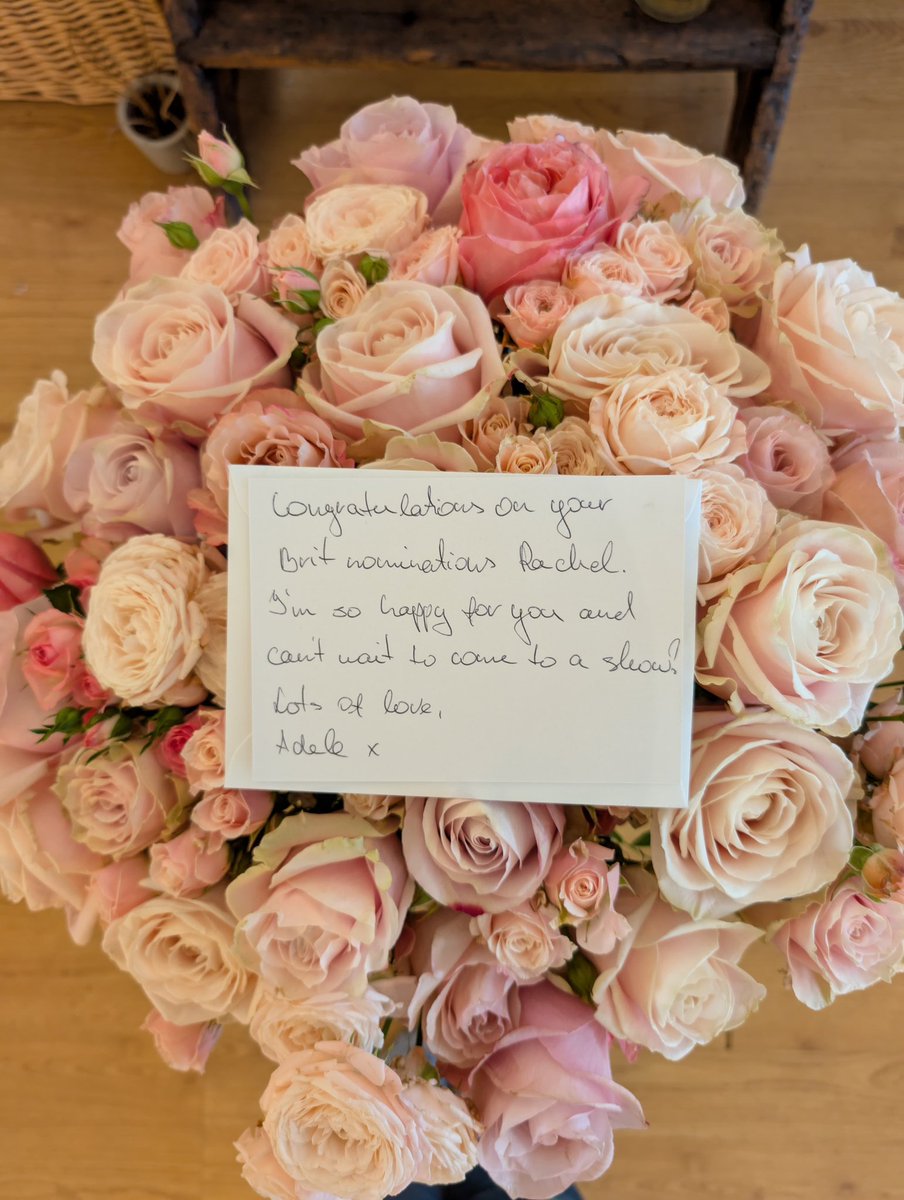 Congratulations on your
Brit nominations Rachel.
I'm so happy for you and
can't wait to come to a show!
Lots of love,
Adele x